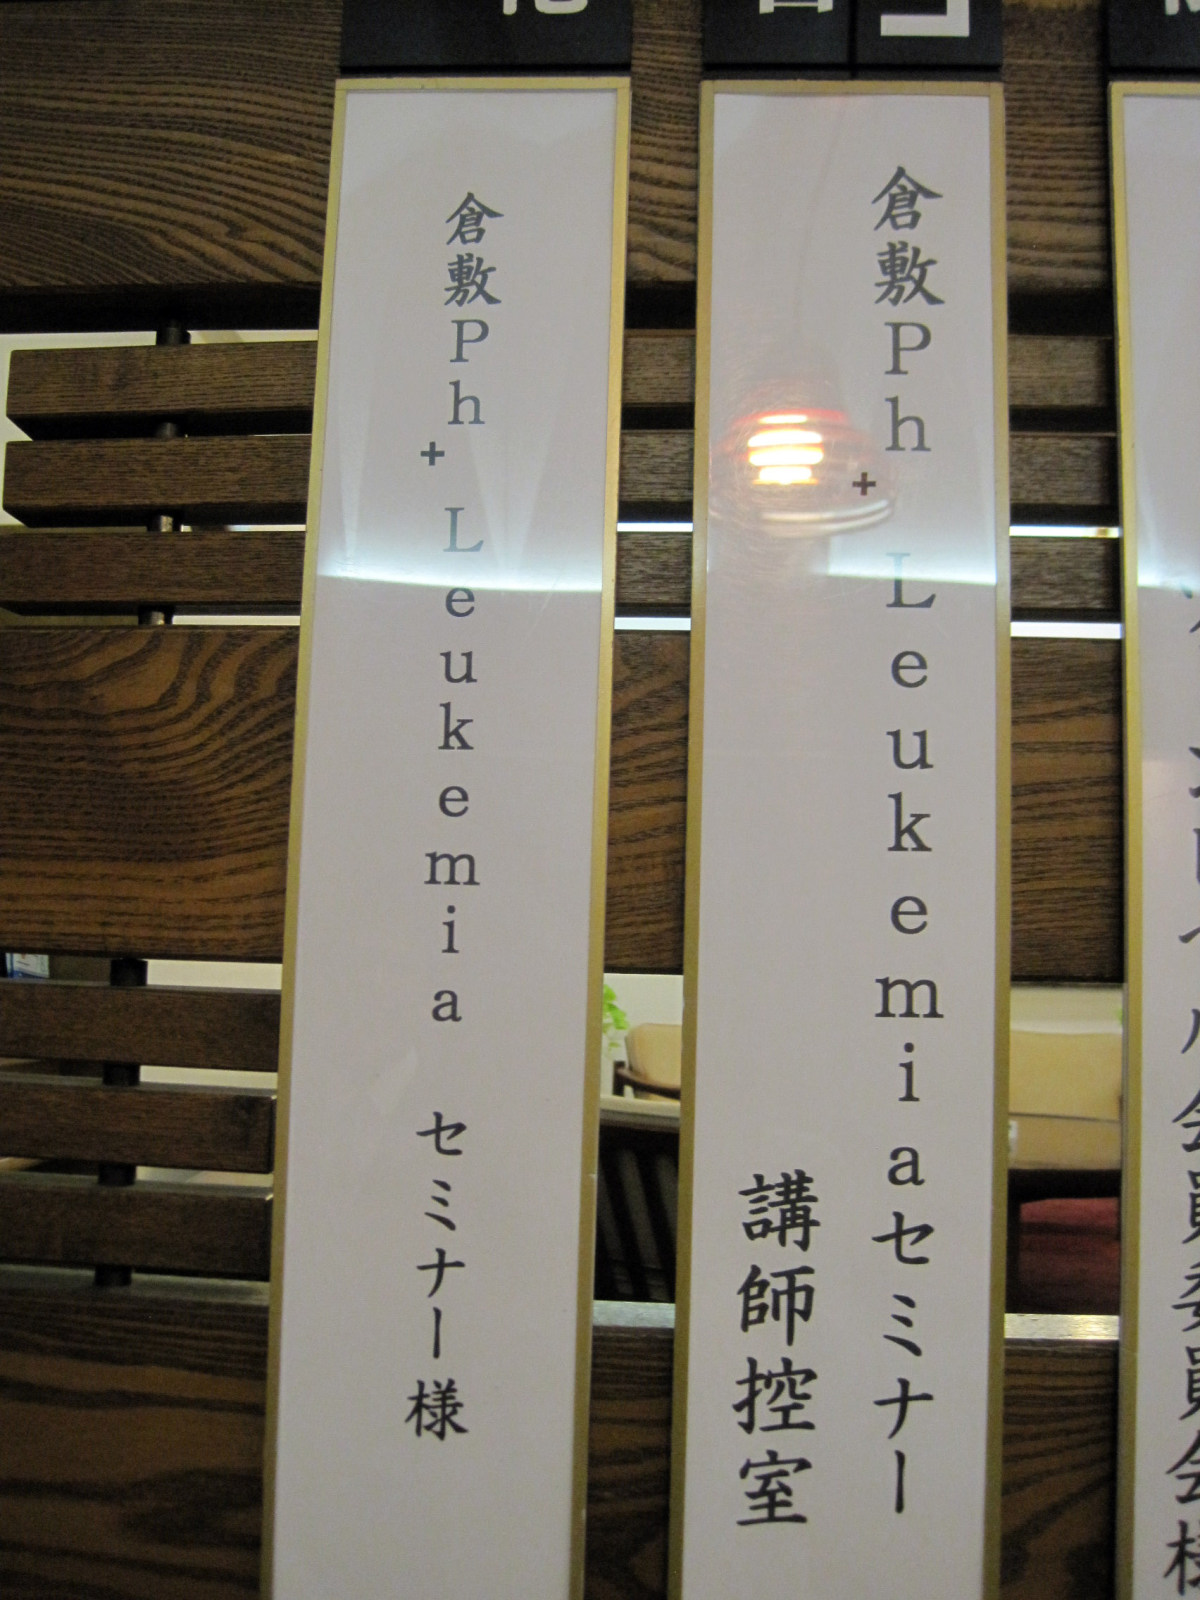 倉敷Ph+ Leukemiaセミナー
講師控室
倉敷Ph+ Leukemia セミナー様
会員委員会様